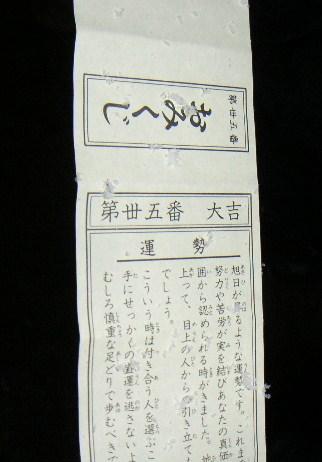 第卅五番
おみくじ
第卅五番 大吉
運勢
旭日が昇るような運勢です。これま
努力や苦労が実を結びあなたの真価
囲から認められる時がきました。
上って、目上の人から引き立て
でしょう。
こういう時は付き合う人を選ぶこ
手にせっかくの運を逃さないよ
むしろ慎重な足どりで歩むべきで